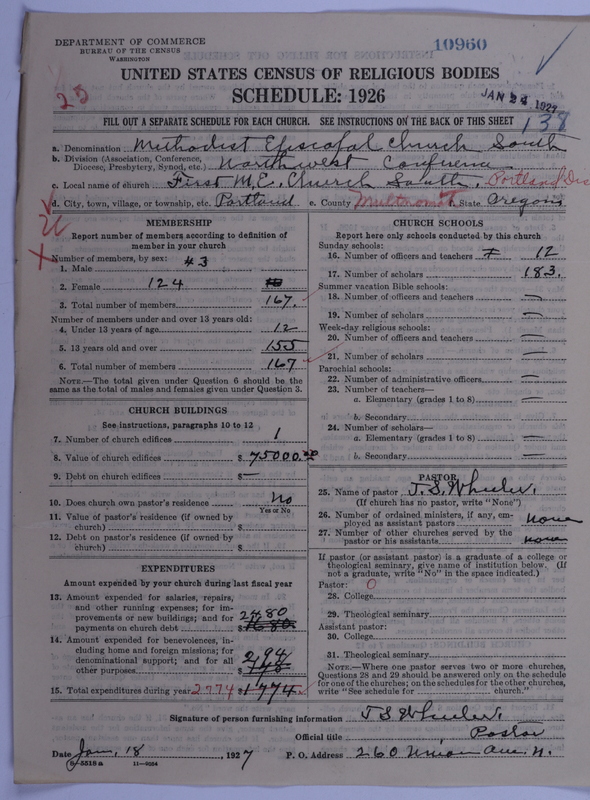 DEPARTMENT OF COMMERCE
BUREAU OF THE CENSUS
WASHINGTON
10960
UNITED STATES CENSUS OF RELIGIOUS BODIES
SCHEDULE: 1926
25
JAN 24 1927
138
FILL OUT A SEPARATE SCHEDULE FOR EACH CHURCH. SEE INSTRUCTIONS ON THE BACK OF THIS SHEET
a. Denomination Methodist Episcopal Church South
b. Division (Association, Conference, Diocese, Presbytery, Synod, etc.) Northwest Conference
c. Local name of church First M.E. Church South. Portland Dis
d. City, town, village, or township, etc. Portland e. County Multnomah State Oregon
MEMBERSHIP
Report number of members according to definition of
member in your church
Number of members, by sex:
1. Male 43
2. Female 124
3. Total number of members 167.
Number of members under and over 13 years old:
4. Under 13 years of age 12
5. 13 years old and over 155
6. Total number of members 167
NOTE.—The total given under Question 6 should be the
same as the total of males and females given under Question 3.
CHURCH BUILDINGS
See instructions, paragraphs 10 to 12
7. Number of church edifices 1
8. Value of church edifices $ 75000.00
9. Debt on church edifices $ —
10. Does church own pastor's residence No
Yes or No
11. Value of pastor's residence (if owned by
church) $
12. Debt on pastor's residence (if owned by
church) $
EXPENDITURES
Amount expended by your church during last fiscal year
13. Amount expended for salaries, repairs,
and other running expenses; for im-
provements or new buildings; and for 2480
payments on church debt $ 1680
14. Amount expended for benevolences, in-
cluding home and foreign missions; for
denominational support; and for all 294
other purposes
15. Total expenditures during year 2774 $ 1774
CHURCH SCHOOLS
Report here only schools conducted by this church
Sunday schools:
16. Number of officers and teachers 12
17. Number of scholars 183.
Summer vacation Bible schools:
18. Number of officers and teachers —
19. Number of scholars —
Week-day religious schools:
20. Number of officers and teachers —
21. Number of scholars —
Parochial schools:
22. Number of administrative officers —
23. Number of teachers—
a. Elementary (grades 1 to 8) —
b. Secondary
24. Number of scholars—
a. Elementary (grades 1 to 8) —
b. Secondary —
PASTOR
25. Name of pastor J.S. Wheeler.
(If church has no pastor, write "None")
26. Number of ordained ministers, if any, em-
ployed as assistant pastors none
27. Number of other churches served by the
pastor or his assistants none
If pastor (or assistant pastor) is a graduate of a college or
theological seminary, give name of institution below. (If
not a graduate, write "No" in the space indicated.)
Pastor: 0
28. College
29. Theological seminary
Assistant pastor:
30. College
31. Theological seminary
NOTE.—Where one pastor serves two or more churches,
Questions 28 and 29 should be answered only on the schedule
for one of the churches; on the schedules for the other churches,
write "See schedule for church."
Signature of person furnishing information J S Wheeler.
Official title Pastor
Date Jan, 18, 1927 P. O. Address 260 Union Ave. N.
8-5518a 11-9254